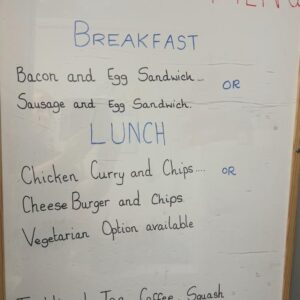 BREAKFAST
Bacon and Egg Sandwich... OR
Sausage and Egg Sandwich.
LUNCH
Chicken Curry and Chips.... OR
Cheese Burger and Chips
Vegetarian Option available
Tea Coffee Squash